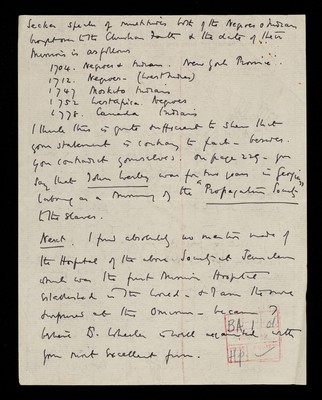 Secker speaks of multitudes both of the Negroes & Indians
brought on to the Christian Faith & the date of their
Missions is as follows
1704. Negroes & Indians. New York Province.
1712. Negroes. (West Indies)
1747 Moskito Indians
1752 West Africa. Negroes
1778. Canada Indians
I think this is quite sufficient to shew that
your statement is contrary to fact - besides.
you contradict yourselves. on page 229 - you
say that John Wesley was for two years in Georgia
labouring as a Missionary of the "Propagation Society"
to the slaves.
Next. I find absolutely no mention made of
the Hospital of the above Society at Jerusalem
which was the first Mission Hospital
established in the World - & I am the more
surprised at the omission - because I
believe Dr. Wheeler is well acquainted with
your most excellent firm.
BA 1 01
HP